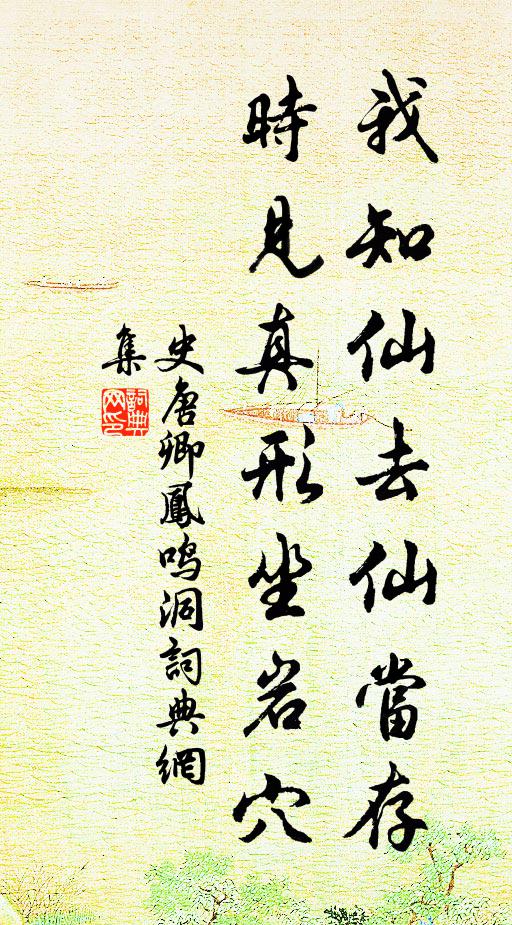 我知仙去仙當存
時見真形坐岩穴
史唐卿鳳鳴洞詞典網
集
詞典
网印